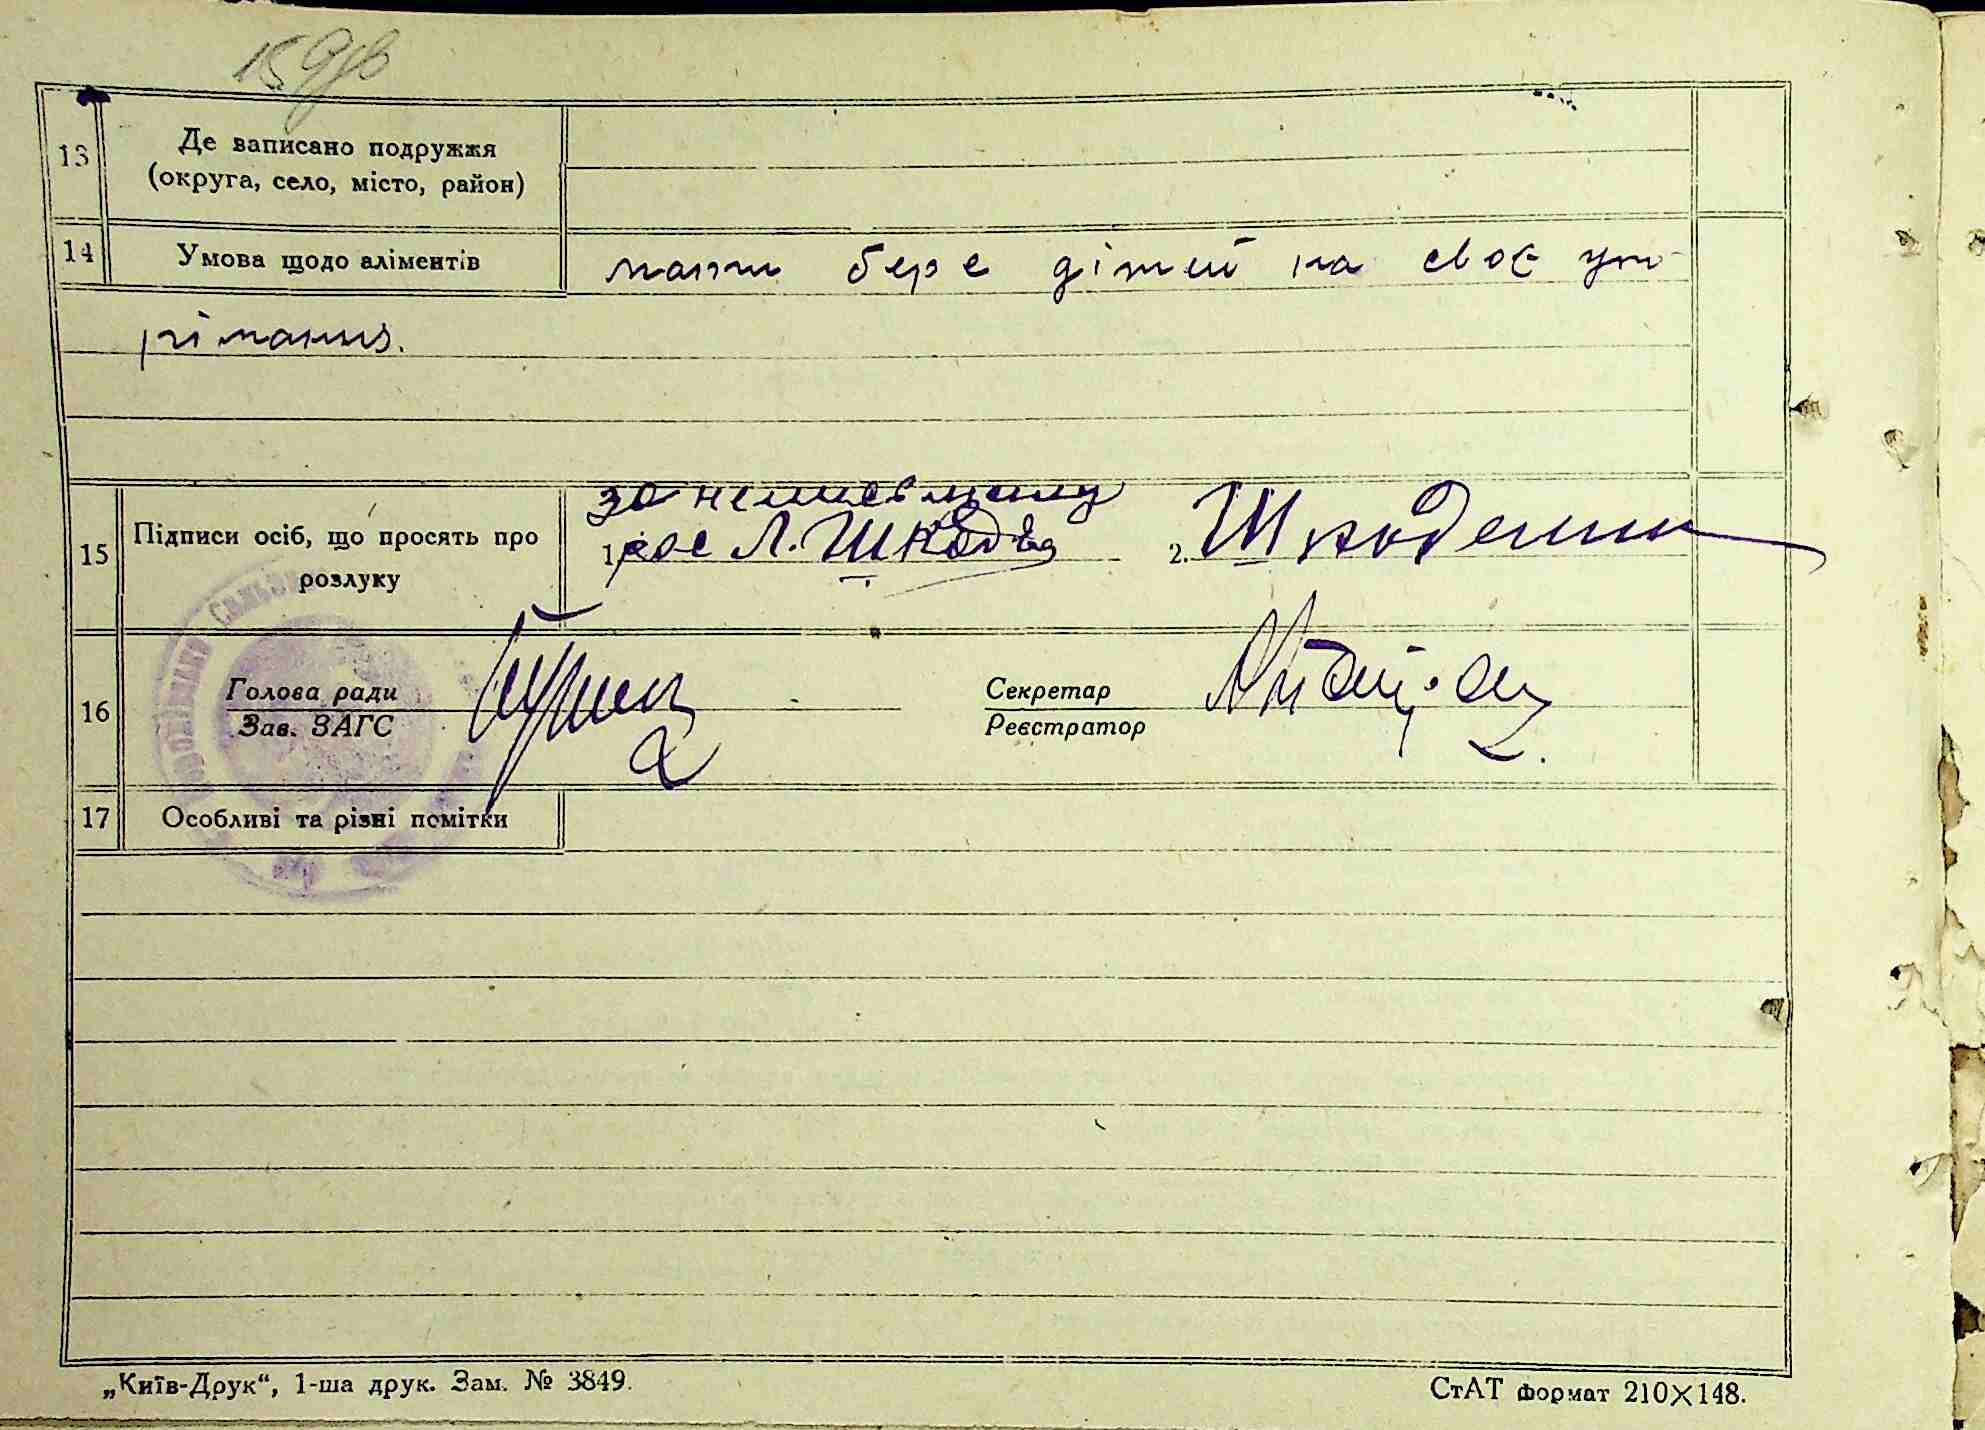 13
Де записано подружжя
(округа, село, місто, район)
14
Умова щодо аліментів
мати бере дітей на своє ут
рімання.
15
Підписи осіб, що просять про
розлуку
за неписьмену
1. рос Л. Шкода
2. Шкоденко
16
Голова ради
Зав. ЗАГС
Секретар
Реєстратор
17
Особливі та різні помітки
„Київ-Друк“, 1-ша друк. Зам. № 3849.
СтАТ формат 210×148.